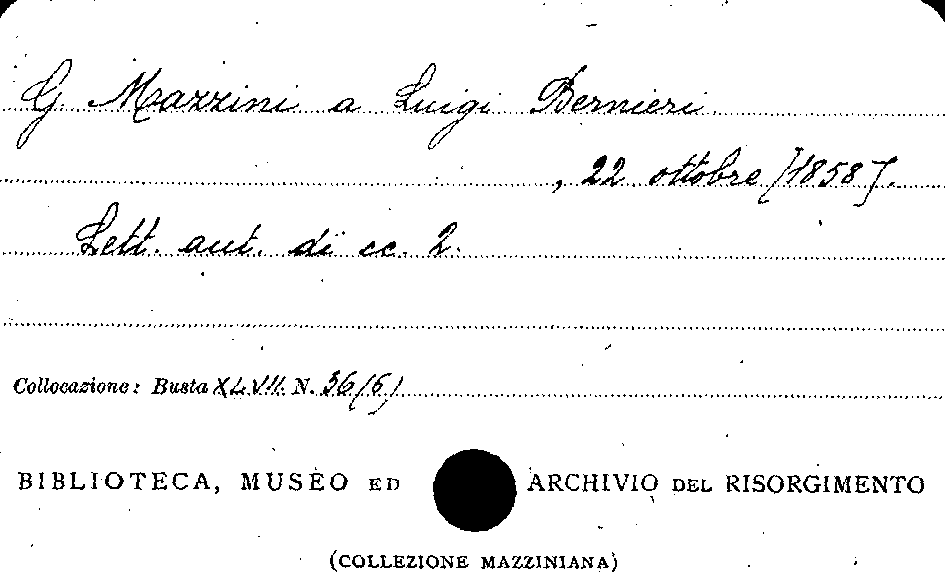 G. Mazzini a Luigi Bernieri
, 22 ottobre [1858].
Lett. aut. di cc. 2.
Collocazione: Busta XLVII. N. 36(6)
BIBLIOTECA, MUSEO ED ARCHIVIO DEL RISORGIMENTO
(COLLEZIONE MAZZINIANA)